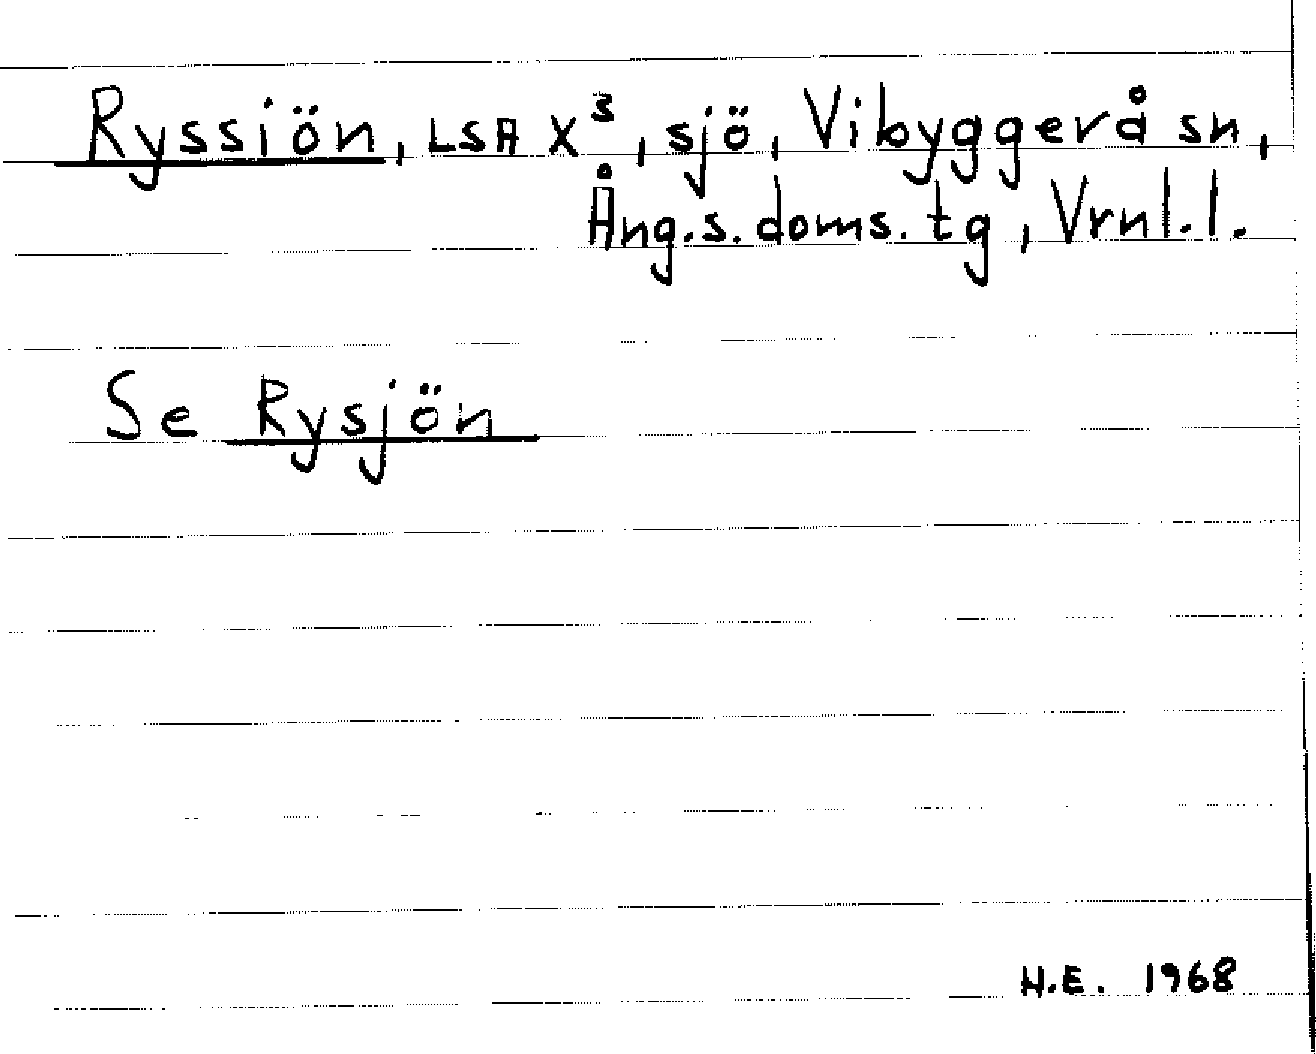 Ryssiön, LSA X³, sjö, Vibyggerå sn,
Ång.s.doms.tg, Vrnl.l.
Se Rysjön
H.E. 1968